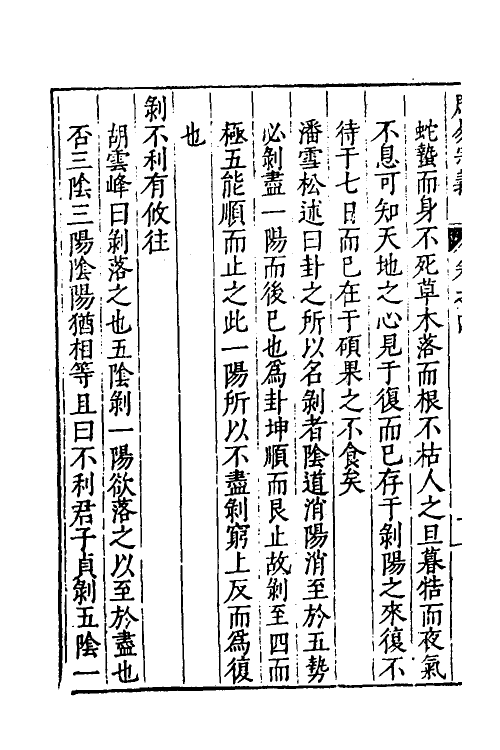 蛇蟄而身不死草木落而根不枯人之旦暮牿而夜氣
不息可知天地之心見于復而已存于剝陽之來復不
待于七日而已在于碩果之不食矣
潘雪松述曰卦之所以名剝者陰道消陽消至於五勢
必剝盡一陽而後已也爲卦坤順而艮止故剝至四而
極五能順而止之此一陽所以不盡剝窮上反而爲復
也
剝不利有攸往
胡雲峰曰剝落之也五陰剝一陽欲落之以至於盡也
否三陰三陽陰陽猶相等且曰不利君子貞剝五陰一